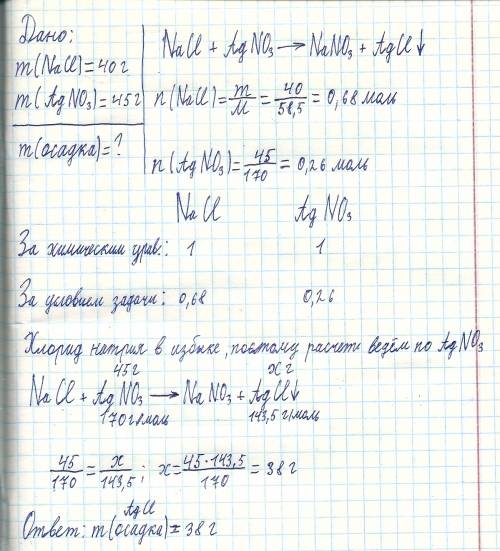 Дано:
m(NaCl)=40г
m(AgNO₃)=45г
m(осадка)=?
NaCl + AgNO₃ → NaNO₃ + AgCl↓
n(NaCl)= m/M = 40/58,5 = 0,68 моль
n(AgNO₃)= 45/170 = 0,26 моль
NaCl AgNO₃
За химическим урав.: 1 1
За условием задачи: 0,68 0,26
Хлорид натрия в избыке, поэтому расчети ведём по AgNO₃
45г xг
NaCl + AgNO₃ → NaNO₃ + AgCl↓
170г/моль 143,5 г/моль
45/170 = x/143,5; x= 45·143,5/170 = 38г
AgCl
Ответ: m(осадка)= 38г